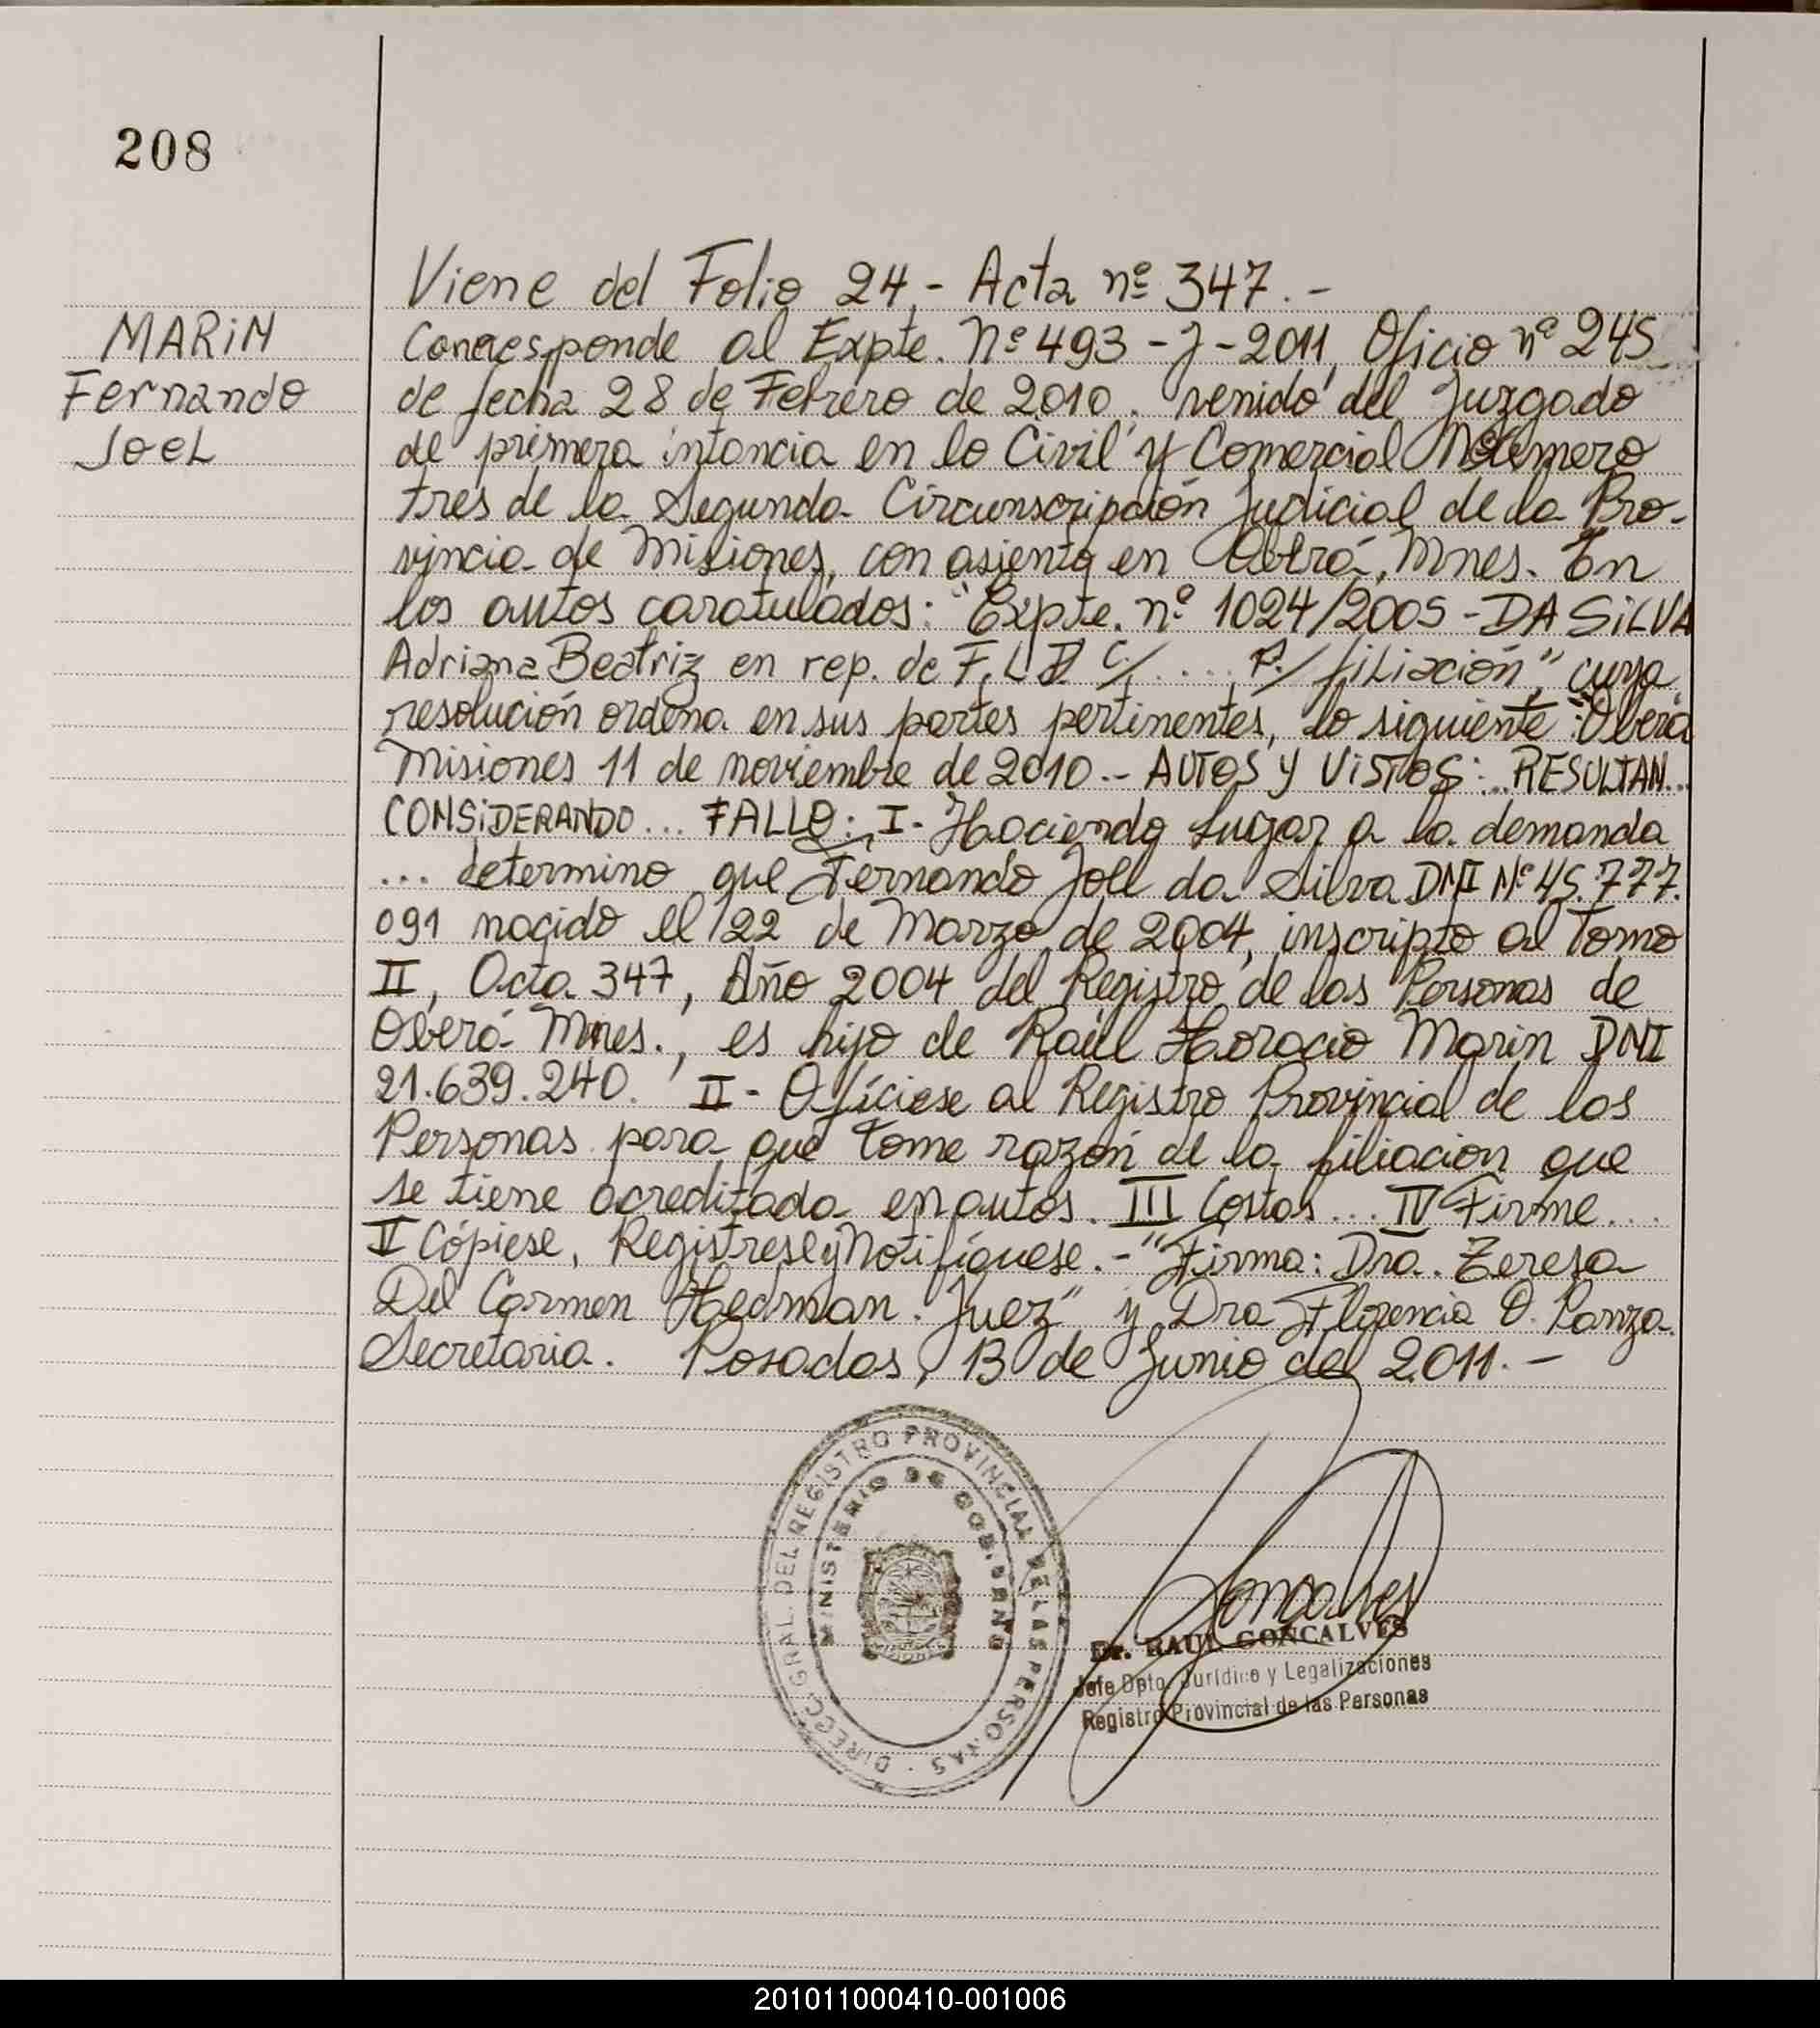 208
MARiN
Fernando
JoeL
Viene del Folio 24.- Acta nº 347.-
Corresponde al Expte. Nº 493 - J - 2011, Oficio nº 245
de fecha 28 de Febrero de 2010. venido del Juzgado
de primera intancia en lo Civil y Comercial Número
tres de la Segunda Circunscripción Judicial de la Pro-
vincia de Misiones, con asiento en Oberá, Mnes. En
los autos caratulados: "Expte. nº 1024/2005 - DA SiLVA
Adriana Beatriz en rep. de F. C/ .... P/ filiación" cuya
resolución ordena en sus partes pertinentes, lo siguiente: "Oberá
Misiones 11 de noviembre de 2010.- AUTOS Y ViSTOS: .. RESULTAN...
CONSiDERANDO... FALLO: I- Haciendo lugar a la demanda
... determino que Fernando Joel da Silva DNI Nº 45.777.
091 nacido el 22 de Marzo de 2004, inscripto al Tomo
II, Acta 347, Año 2004 del Registro de las Personas de
Oberá Mnes., es hijo de Raúl Horacio Marin DNI
21.639.240. II- Ofíciese al Registro Provincial de las
Personas para que tome razón de la filiación que
se tiene acreditada en autos. III Costas... IV Firme...
V Cópiese, Regístrese y Notifíquese.-" Firma: Dra. Teresa
Del Carmen Hedman. Juez" y Dra Florencia O. Panza.
Secretaria. Posadas, 13 de Junio del 2011.-
DIRECC. GRAL. DEL REGISTRO PROVINCIAL DE LAS PERSONAS
MINISTERIO DE GOBIERNO
Goncalves
Dr. RAUL GONCALVES
Jefe Dpto. Jurídico y Legalizaciones
Registro Provincial de las Personas
201011000410-001006